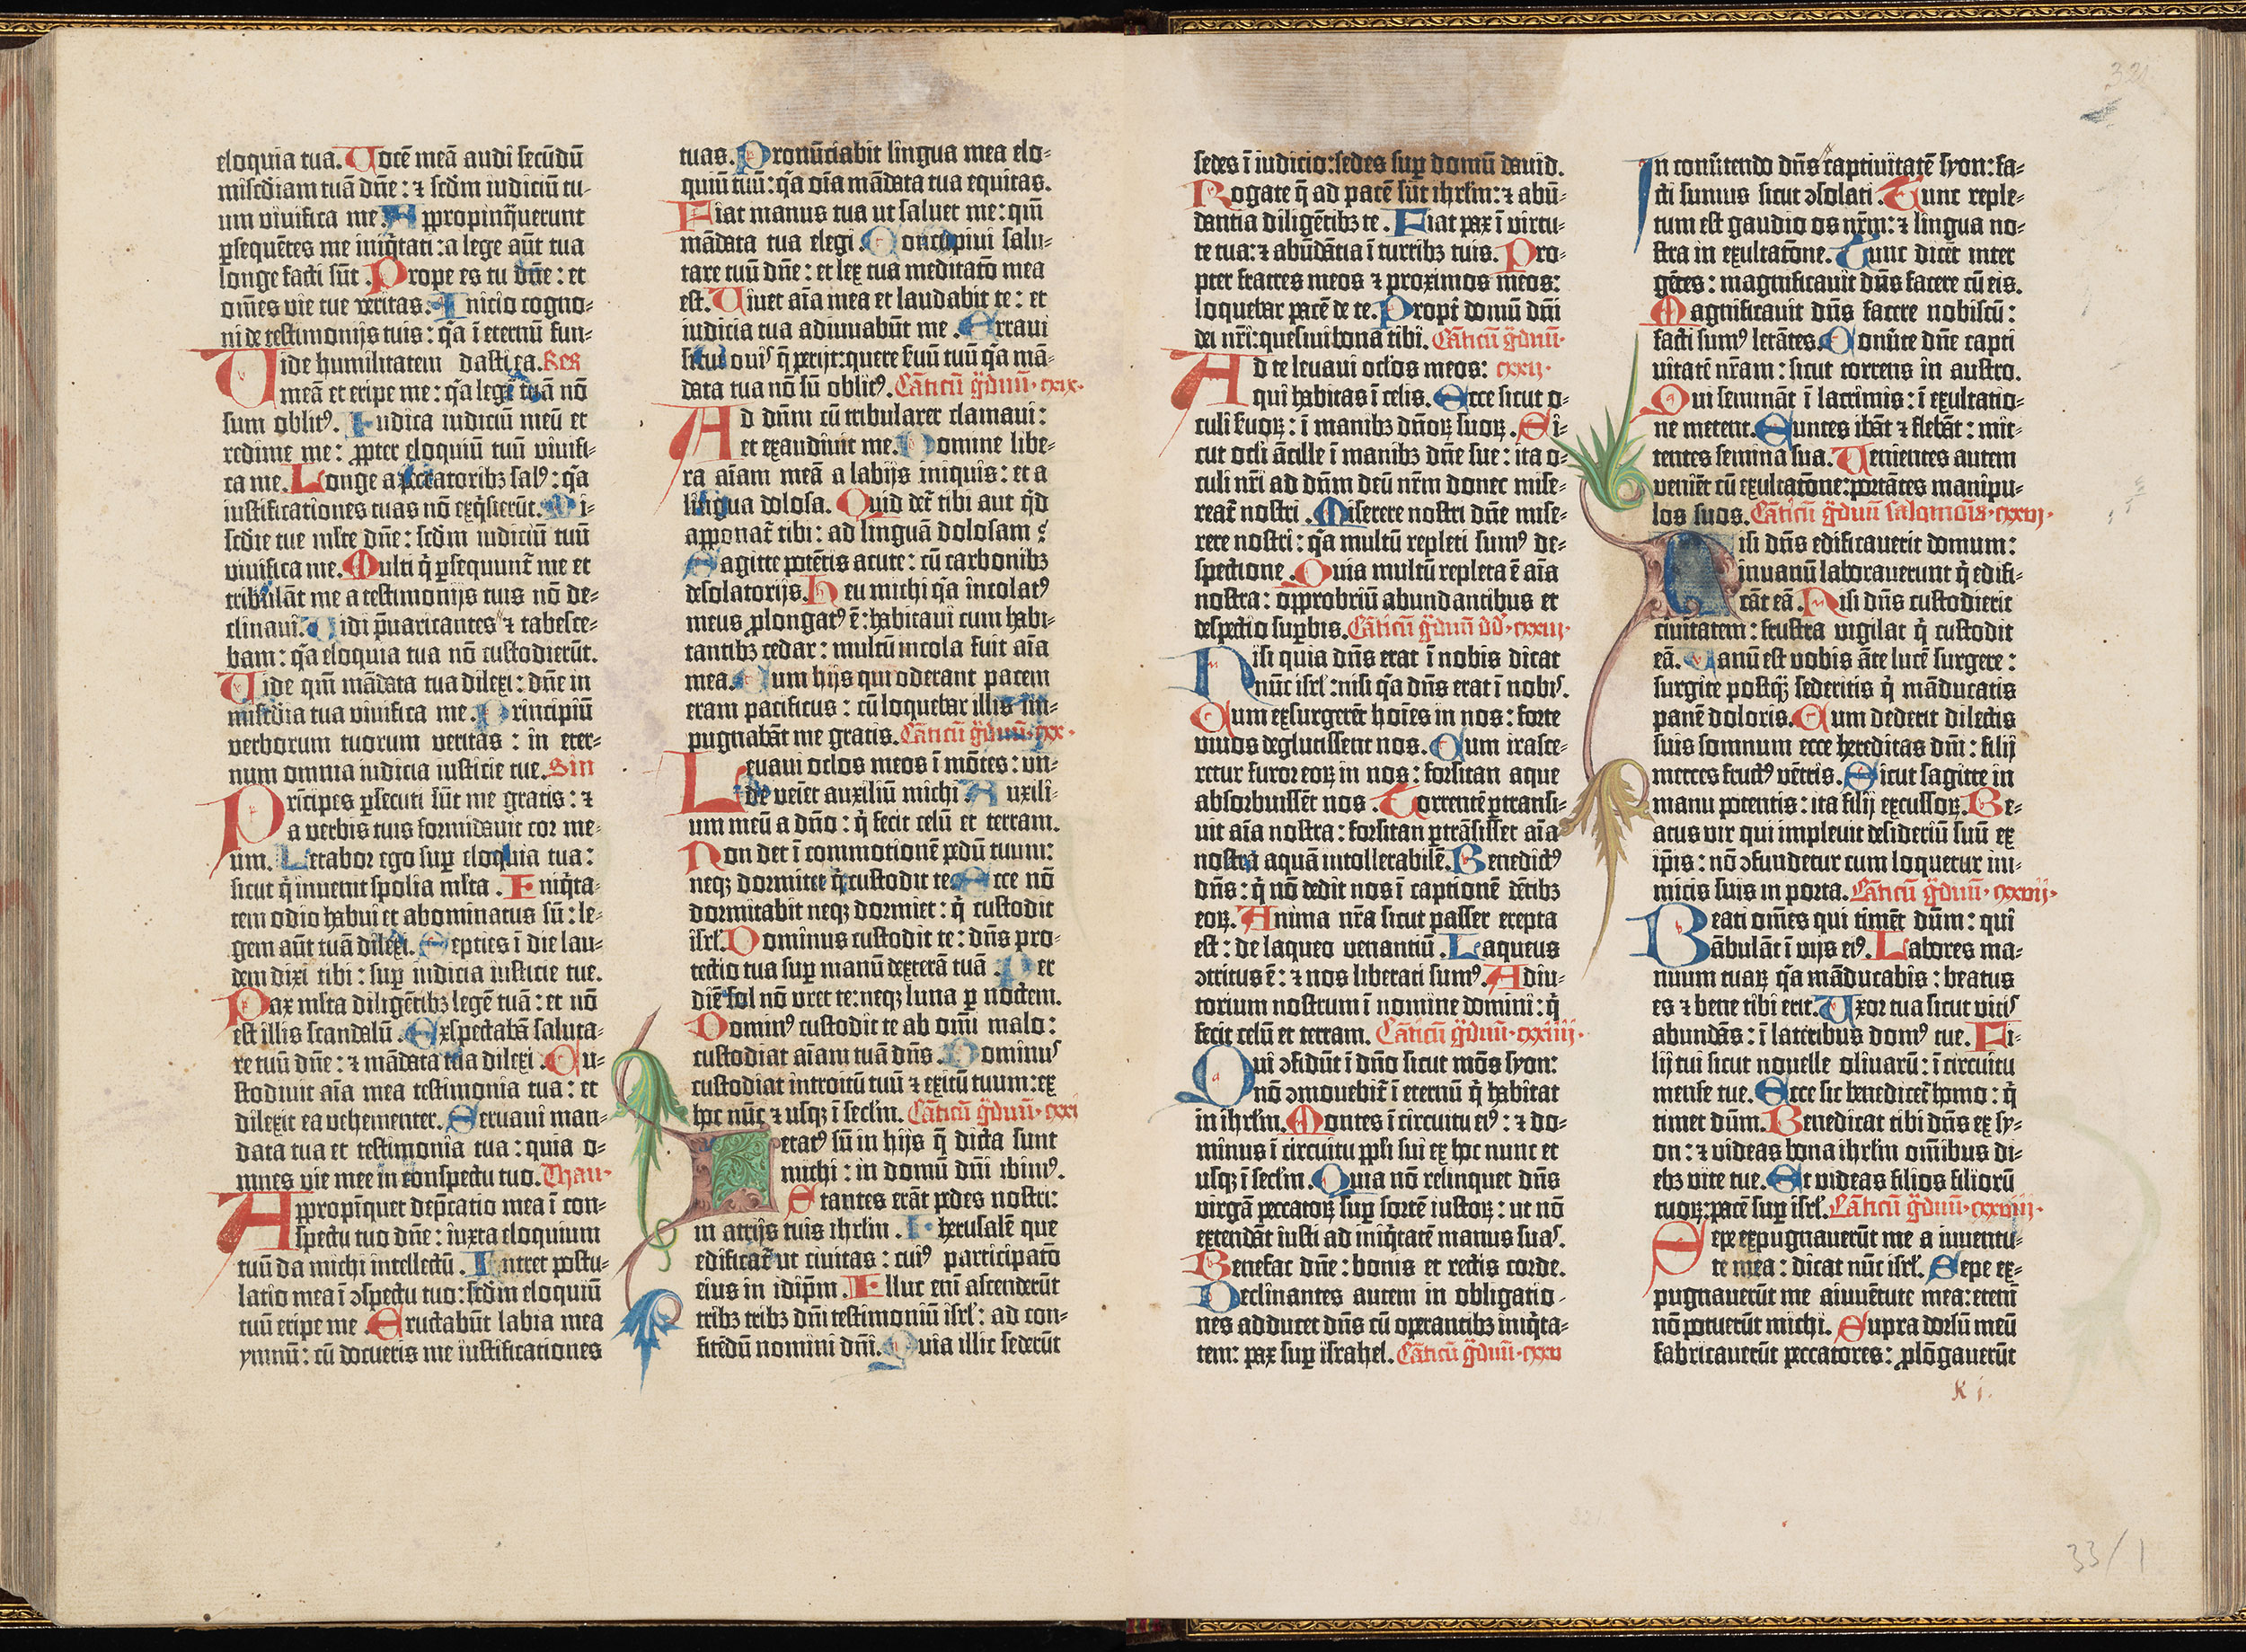 eloquia tua. Vocē meā audi secūdū
miſcdiam tuā dñe: ⁊ ſcdm iudiciū tu-
um vivifica me. Appropinq̄uerunt
ꝑſequētes me iniq̄tati: a lege aūt tua
longe facti ſūt. Prope es tu dñe: et
om̄es vie tue veritas. Inicio cogno-
vi de teſtimonijs tuis: q̄a ī eternū fun-
Vide humilitatem daſti ea. Res
meā et eripe me: q̄a legē tuā nō
ſum oblitꝰ. Iudica iudiciū meū et
redime me: ꝓpter eloquiū tuū vivifi-
ca me. Longe a pctatoribꝫ ſalꝰ: q̄a
iuſtificationes tuas nō exq̄ſierūt. Mi-
ſcdie tue mlte dñe: ſcdm iudiciū tuū
vivifica me. Multi q̄ ꝑſequunt᷑ me et
tribulāt me a teſtimonijs tuis nō de-
clinavi. Vidi p̄uaricantes ⁊ tabeſce-
bam: q̄a eloquia tua nō cuſtodierūt.
Vide qm̄ mādata tua dilexi: dñe in
miſcdia tua vivifica me. Principiū
verborum tuorum veritas: in eter-
num omnia iudicia iuſticie tue. Sin
Prīcipes ꝑſecuti ſūt me gratis: ⁊
a verbis tuis formidavit cor me-
um. Letabor ego ſuꝑ eloquia tua:
ſicut q̄ invenit ſpolia mlta. Iniq̄ta-
tem odio habui et abominatus ſū: le-
gem aūt tuā dilexi. Septies ī die lau-
dem dixi tibi: ſuꝑ iudicia iuſticie tue.
Pax mlta diligētibꝫ legē tuā: et nō
eſt illis ſcandalū. Exſpectabā ſaluta-
re tuū dñe: ⁊ mādata tua dilexi. Cu-
ſtodivit aīa mea teſtimonia tua: et
dilexit ea vehementer. Servavi man-
data tua et teſtimonia tua: quia o-
mnes vie mee in conſpectu tuo. Thau.
Appropīquet dep̄catio mea ī con-
ſpectu tuo dñe: iuxta eloquium
tuū da michi intellectū. Intret poſtu-
latio mea ī ↄſpectu tuo: ſcdm eloquiū
tuū eripe me. Eructabūt labia mea
ymnū: cū docueris me iuſtificationes
tuas. Pronūciabit lingua mea elo-
quiū tuū: q̄a oīa mādata tua equitas.
Fiat manus tua ut ſaluet me: qm̄
mādata tua elegi. Concupivi ſalu-
tare tuū dñe: et lex tua meditatō mea
eſt. Vivet aīa mea et laudabit te: et
iudicia tua adiuvabūt me. Erravi
ſicut ovis q̄ periit: quere ſervū tuū q̄a mā-
data tua nō ſū oblitꝰ. Cāticū g̈duū. cxix.
Ad dn̄m cū tribularer clamavi:
et exaudivit me. Domine libe-
ra aīam meā a labijs iniquis: et a
lingua doloſa. Quid det᷑ tibi aut q̄d
apponat᷑ tibi: ad linguā doloſam?
Sagitte potētis acute: cū carbonibꝫ
deſolatorijs. Heu michi q̄a īcolatꝰ
meus ꝓlongatꝰ ē: habitavi cum habi-
tantibꝫ cedar: multū incola fuit aīa
mea. Cum hijs qui oderant pacem
eram pacificus: cū loquebar illis im-
pugnabāt me gratis. Cāticū g̈duū. cxx.
Levavi oclos meos ī mōtes: un-
de veīet auxiliū michi. Auxili-
um meū a dño: q̄ fecit celū et terram.
Non det ī commotionē pedū tuum:
neqꝫ dormitet q̄ cuſtodit te. Ecce nō
dormitabit neqꝫ dormiet: q̄ cuſtodit
iſrl. Dominus cuſtodit te: dñs pro-
tectio tua ſuꝑ manū dexterā tuā. Per
diē ſol nō uret te: neqꝫ luna ꝑ noctem.
Dominꝰ cuſtodit te ab om̄i malo:
cuſtodiat aīam tuā dñs. Dominus
cuſtodiat introitū tuū ⁊ exitū tuum: ex
hoc nūc ⁊ uſqꝫ ī ſeclm. Cāticū g̈duū. cxxi
Letatꝰ ſū in hijs q̄ dicta ſunt
michi: in domū dñi ibimꝰ.
Stantes erāt pedes noſtri:
in atrijs tuis ihrlm. Iheruſalē que
edificat᷑ ut civitas: cuiꝰ participatō
eius in idip̄m. Illuc enī aſcenderūt
tribꝫ tribꝫ dñi teſtimoniū iſrl: ad con-
fitēdū nomini dñi. Quia illic ſederūt
ſedes ī iudicio: ſedes ſuꝑ domū david.
Rogate q̄ ad pacē ſūt ihrlm: ⁊ abū-
dantia diligētibꝫ te. Fiat pax ī virtu-
te tua: ⁊ abūdātia ī turribꝫ tuis. Pro-
pter fratres meos ⁊ proximos meos:
loquebar pacē de te. Propt᷑ domū dñi
dei nr̄i: queſivi bona tibi. Cāticū g̈duū.
Ad te levavi oclos meos: cxxij.
qui habitas ī celis. Ecce ſicut o-
culi ſervoꝝ: ī manibꝫ dñoꝝ ſuoꝝ. Si-
cut ocli ācille ī manibꝫ dñe ſue: ita o-
culi nr̄i ad dn̄m deū nr̄m donec miſe-
reat᷑ noſtri. Miſerere noſtri dñe miſe-
rere noſtri: q̄a multū repleti ſumꝰ de-
ſpectione. Quia multū repleta ē aīa
noſtra: opprobriū abundantibus et
deſpectio ſuꝑbis. Cāticū g̈duū dd. cxxiij.
Niſi quia dñs erat ī nobis dicat
nūc iſrl: niſi q̄a dñs erat ī nobis.
Cum exſurgerēt hoīes in nos: forte
vivos deglutiſſent nos. Cum iraſce-
retur furor eoꝝ in nos: forſitan aque
abſorbuiſſēt nos. Torrentē ꝑtranſi-
vit aīa noſtra: forſitan ꝑtrāſiſſet aīa
noſtra aquā intollerabilē. Benedictꝰ
dñs: q̄ nō dedit nos ī captionē dētibꝫ
eoꝝ. Anima nr̄a ſicut paſſer erepta
eſt: de laqueo venantiū. Laqueus
ↄtritus ē: ⁊ nos liberati ſumꝰ. Adiu-
torium noſtrum ī nomine domini: q̄
fecit celū et terram. Cāticū g̈duū. cxxiiij.
Qui ↄfidūt ī dño ſicut mōs ſyon:
nō ↄmovebit᷑ ī eternū q̄ habitat
in ihrlm. Montes ī circuitu eiꝰ: ⁊ do-
minus ī circuitu ppli ſui ex hoc nunc et
uſqꝫ ī ſeclm. Quia nō relinquet dñs
virgā peccatoꝝ ſuꝑ ſortē iuſtoꝝ: ut nō
extendāt iuſti ad iniq̄tatē manus ſuas.
Benefac dñe: bonis et rectis corde.
Declinantes autem in obligatio-
nes adducet dñs cū operantibꝫ iniq̄ta-
tem: pax ſuꝑ iſrahel. Cāticū g̈duū. cxxv
In conūtendo dñs captivitatē ſyon: fa-
cti ſumus ſicut ↄſolati. Tunc reple-
tum eſt gaudio os nr̄m: ⁊ lingua no-
ſtra in exultatōne. Tunc dicēt inter
gētes: magnificavit dñs facere cū eis.
Magnificavit dñs facere nobiſcū:
facti ſumꝰ letātes. Conūte dñe capti
vitatē nr̄am: ſicut torrens in auſtro.
Qui ſemināt ī lacrimis: ī exultatio-
ne metent. Euntes ibāt ⁊ flebāt: mit-
tentes ſemina ſua. Venientes autem
veniēt cū exultatōne: portātes manipu-
los ſuos. Cāticū g̈duū ſalomōis. cxxvj.
Niſi dñs edificaverit domum:
in vanū laboraverunt q̄ edifi-
cāt eā. Niſi dñs cuſtodierit
civitatem: fruſtra vigilat q̄ cuſtodit
eā. Vanū eſt vobis āte lucē ſurgere:
ſurgite poſtqꝫ ſederitis q̄ māducatis
panē doloris. Cum dederit dilectis
ſuis ſomnum ecce hereditas dñi: filij
merces fructꝰ vētris. Sicut ſagitte in
manu potentis: ita filij excuſſoꝝ. Be-
atus vir qui implevit deſideriū ſuū ex
ip̄is: nō ↄfundetur cum loquetur ini-
micis ſuis in porta. Cāticū g̈duū. cxxvij.
Beati om̄es qui timēt dūm: qui
ābulāt ī vijs eiꝰ. Labores ma-
nuum tuaꝝ q̄a māducabis: beatus
es ⁊ bene tibi erit. Uxor tua ſicut vitis
abundās: ī lateribus domꝰ tue. Fi-
lij tui ſicut novelle olivarū: ī circuitu
menſe tue. Ecce ſic benedicet᷑ homo: q̄
timet dūm. Benedicat tibi dñs ex ſy-
on: ⁊ videas bona ihrlm om̄ibus di-
ebꝫ vite tue. Et videas filios filiorū
tuoꝝ: pacē ſuꝑ iſrl. Cāticū g̈duū. cxxviij.
Sepe expugnaverūt me a iuventu-
te mea: dicat nūc iſrl. Sepe ex-
pugnaverūt me a iuvētute mea: etenī
nō potuerūt michi. Supra dorſū meū
fabricaverūt peccatores: ꝓlōgaverūt
K j.
321
33/1